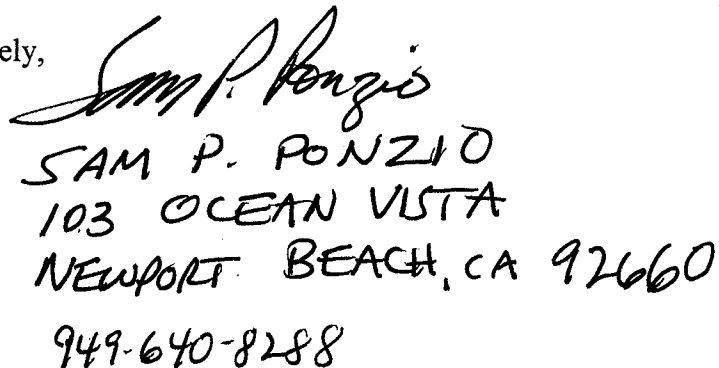 ely,
Sam P. Ponzio
SAM P. PONZIO
103 OCEAN VISTA
NEWPORT BEACH, CA 92660
949-640-8288